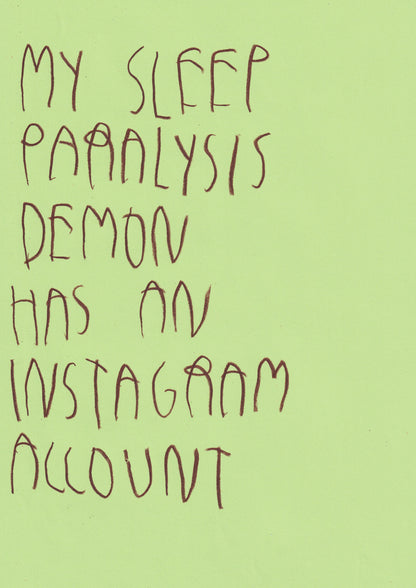 MY SLEEP
PARALYSIS
DEMON
HAS AN
INSTAGRAM
ACCOUNT